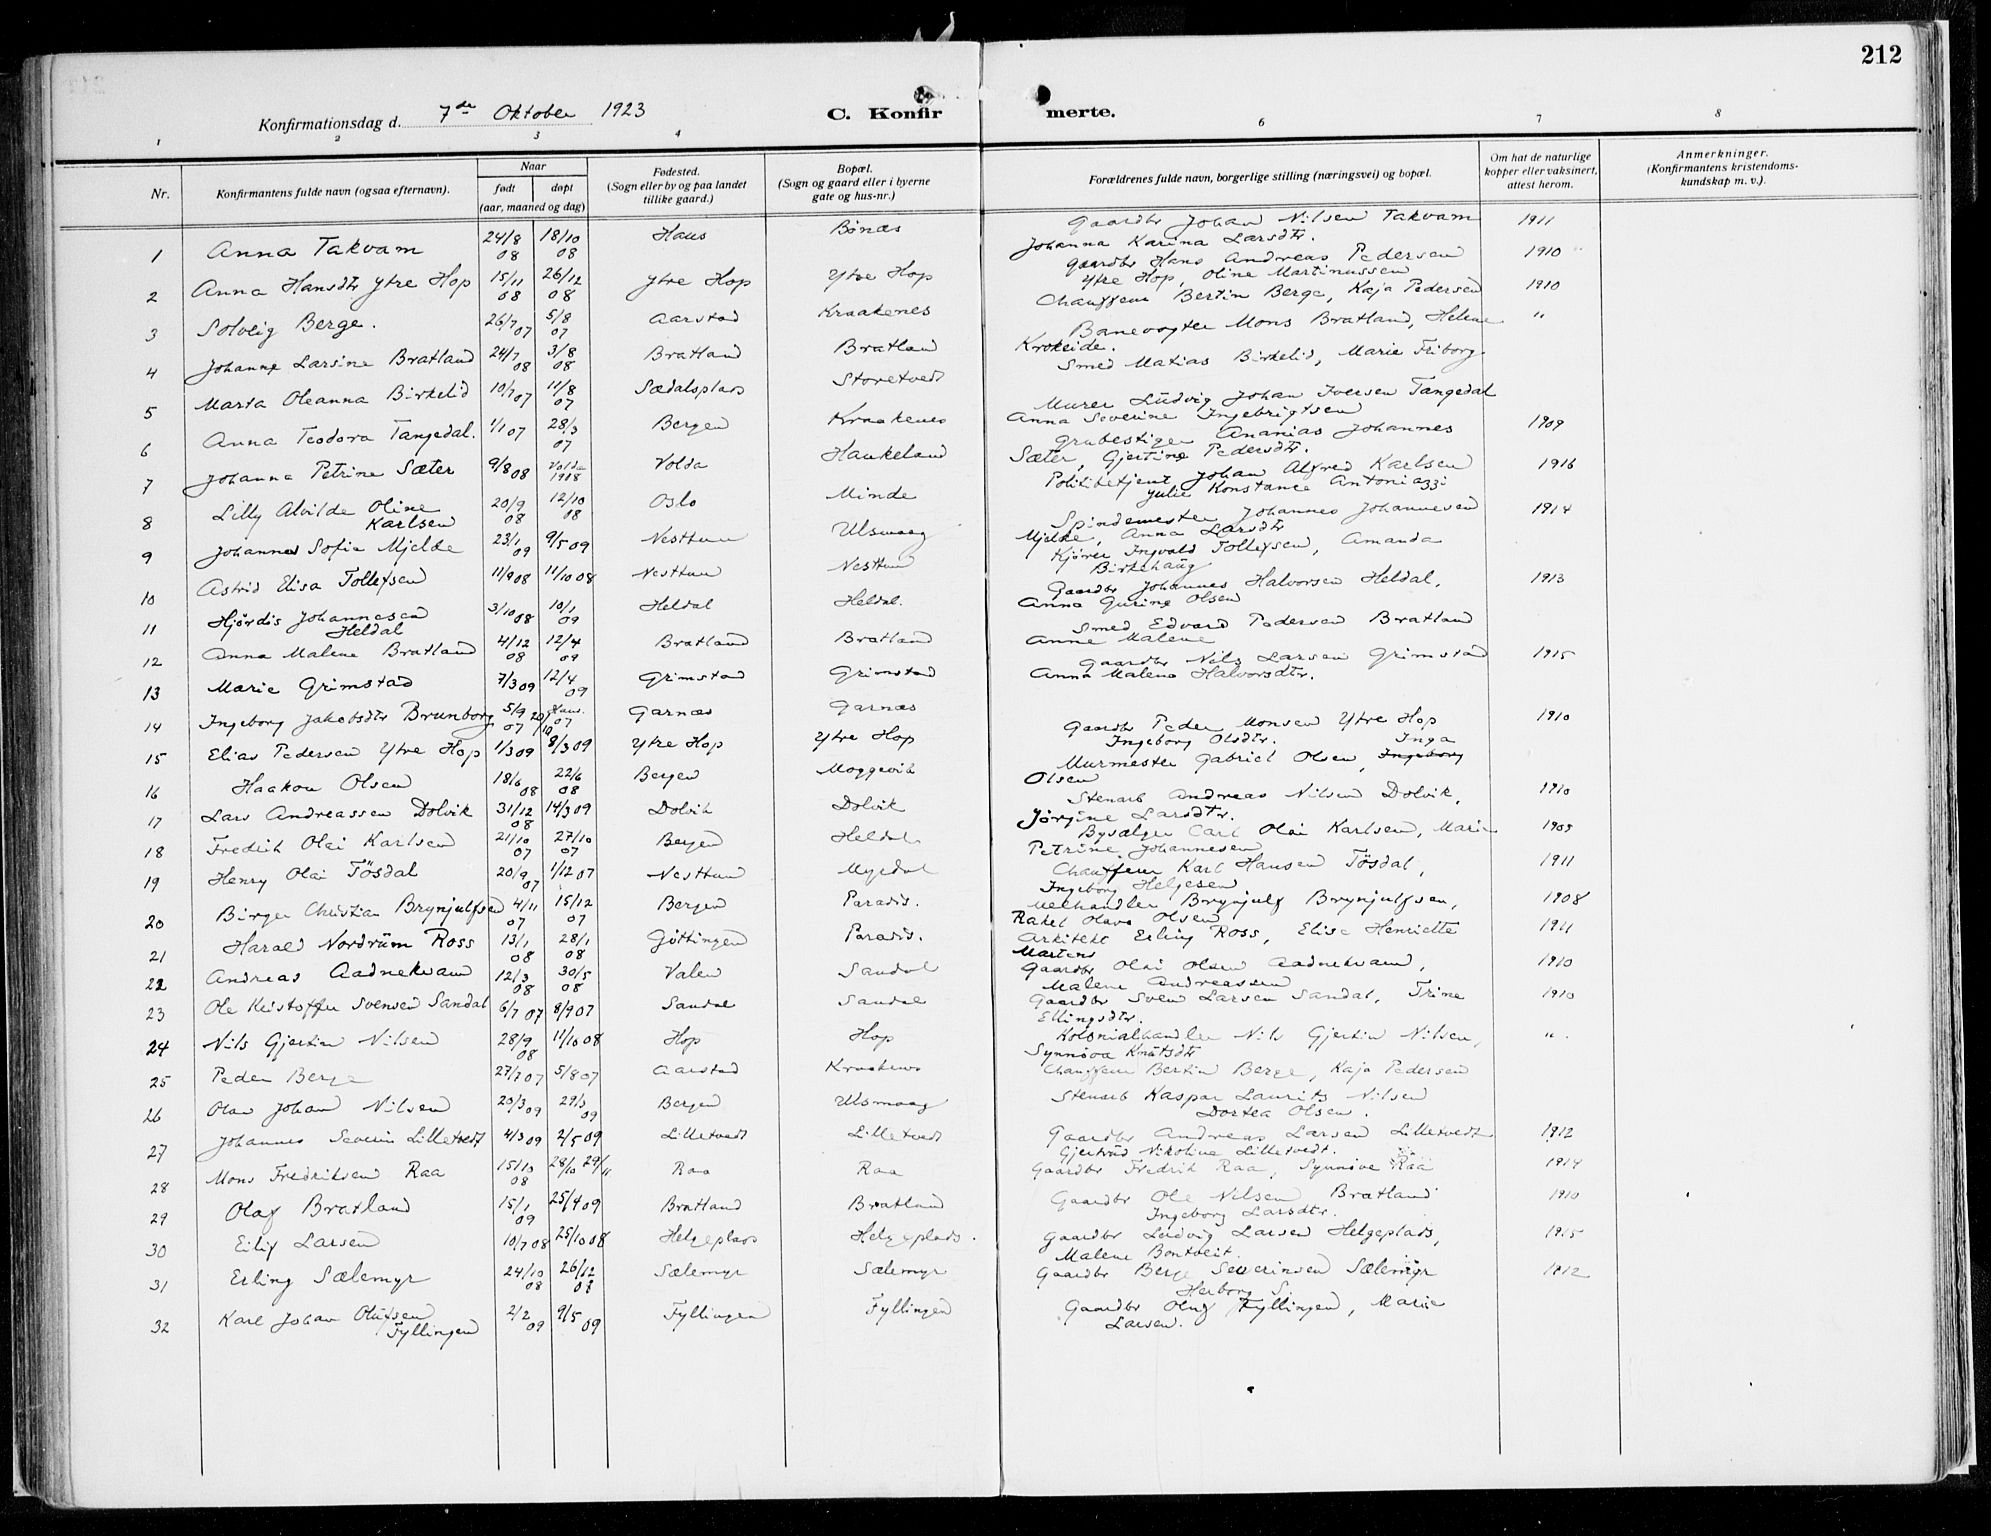 212
Konfirmationsdag d. 7de Oktober 1923
C. Konfirmerte.
1 2 3 4 6 7 8
Nr. Konfirmantens fulde navn (ogsaa efternavn). Naar født døpt (aar, maaned og dag) Fødested. (Sogn eller by og paa landet tillike gaard.) Bopæl. (Sogn og gaard eller i byerne gate og hus-nr.) Forældrenes fulde navn, borgerlige stilling (næringsvei) og bopæl. Om hat de naturlige kopper eller vaksinert, attest herom. Anmerkninger. (Konfirmantens kristendomskundskap m. v.).
1 Anna Takvam 24/8 08 18/10 08 Haus Bønæs Gaardbr Johan Nilsen Takvam Johanna Karina Larsdtr. 1911
2 Anna Hansdtr Ytre Hop 15/11 08 26/12 08 Ytre Hop Ytre Hop Gaardbr Hans Andreas Pedersen Ytre Hop, Oline Martinussen 1910
3 Solveig Berge. 26/7 07 5/8 07 Aarstad Kraakenes Chauffeur Bertin Berge, Kaja Pedersen 1910
4 Johanne Larsine Bratland 24/7 08 3/8 08 Bratland Bratland Banevogter Mons Bratland, Helene Krokeide. "
5 Marta Oleanna Birkelid 10/7 07 11/8 07 Sædalsplads Storetvedt Smed Matias Birkelid, Marie Friborg
6 Anna Teodora Tangedal. 1/1 07 28/3 07 Bergen Kraakenes Murer Ludvig Johan Iversen Tangedal Anna Severine Ingebrigtsen
7 Johanna Petrine Sæter 9/8 08 Volda 1908 Volda Haukeland Grubestiger Ananias Johannes Sæter, Gjertine Pedersdtr. 1909
8 Lilly Alvilde Oline Karlsen 20/9 08 12/10 08 Oslo Minde Politibetjent Johan Alfred Karlsen Julie Konstance Antoniazzi 1916
9 Johannes Sofie Mjelde 23/1 09 9/5 09 Nesttun Ulsmaag Spindemester Johannes Johannesen Mjelde, Anna Larsdtr 1914
10 Astrid Elisa Tollefsen 11/9 08 11/10 08 Nesttun Nesttun Kjører Ingvald Tollefsen, Amanda Birkehaug
11 Hjørdis Johannesen Heldal 3/10 08 10/1 09 Heldal Heldal. Gaardbr Johannes Halvorsen Heldal, Anna Gurine Olsen 1913
12 Anna Malene Bratland 4/12 08 12/4 09 Bratland Bratland Smed Edvard Pedersen Bratland Anne Malene
13 Marie Grimstad 7/3 09 12/4 09 Grimstad Grimstad Gaardbr Nils Larsen Grimstad Anna Malena Halvorsdtr. 1915
14 Ingeborg Jakobsdtr Brunborg 5/9 07 20/10 Haus. 07 Garnæs Garnæs
15 Elias Pedersen Ytre Hop 1/3 09 8/3 09 Ytre Hop Ytre Hop Gaardbr Peder Monsen Ytre Hop Ingeborg Olsdtr. 1910
16 Haakon Olsen 18/6 08 22/6 08 Bergen Moggevik Murmester Gabriel Olsen, Ingeborg Inga Olsen
17 Lars Andreassen Dolvik 31/12 08 14/3 09 Dolvik Dolvik Stenarb Andreas Nilsen Dolvik, Jørgine Larsdtr. 1910
18 Fredrik Olai Karlsen 21/10 07 27/10 07 Bergen Heldal Bysælger Carl Olai Karlsen, Marie Petrine Johannesen 1909
19 Henry Olai Tösdal 20/9 07 1/12 07 Nesttun Myrdal Chauffeur Karl Hansen Tösdal, Ingeborg Helgesen 1911
20 Birger Christian Brynjulfsen 4/11 07 15/12 07 Bergen Paradis. Brynjulf Brynjulfsen, Rakel Olava Olsen 1908
21 Harald Nordrum Ross 13/1 08 28/1 08 Göttingen Paradis. Arkitekt Erling Ross, Elise Henriette Martens 1911
22 Andreas Aadnekvam 12/3 08 30/5 08 Valen Sandal Gaardbr Olai Olsen Aadnekvam, Malene Andreassen 1910
23 Ole Kristoffer Svensen Sandal 6/7 07 8/9 07 Sandal Sandal Gaardbr Sven Larsen Sandal, Trine Ellingsdtr. 1910
24 Nils Gjertin Nilsen 28/9 08 11/10 08 Hop Hop Kolonialhandler Nils Gjertin Nilsen, Synnøva Knutsdtr "
25 Peder Berge 27/7 07 5/8 07 Aarstad Kraakenes Chauffeur Bertin Berge, Kaja Pedersen
26 Olav Johan Nilsen 20/3 09 29/3 09 Bergen Ulsmaag Stenarb Kaspar Laurits Nilsen Dortea Olsen.
27 Johannes Severin Lilletvedt 4/3 09 2/5 09 Lilletvedt Lilletvedt Gaardbr Andreas Larsen Lilletvedt Gjertrud Nikoline Lilletvedt. 1912
28 Mons Fredriksen Raa 15/10 08 28/10 29/11 Raa Raa Gaardbr Fredrik Raa, Synnøve Raa 1914
29 Olaf Bratland 15/1 09 25/4 09 Bratland Bratland Gaardbr Ole Nilsen Bratland Ingeborg Larsdtr. 1910
30 Eilif Larsen 10/7 08 25/10 08 Helgeplads Helgeplads. Gaardbr Ludvig Larsen Helgeplads, Malene Bontveit. 1915
31 Erling Sælemyr 24/10 08 26/12 08 Sælemyr Sælemyr Gaardbr Berge Severinsen Sælemyr Herborg S. 1912
32 Karl Johan Olufsen Fyllingen 2/2 09 9/5 09 Fyllingen Fyllingen Gaardbr Oluf Fyllingen, Marie Larsen.